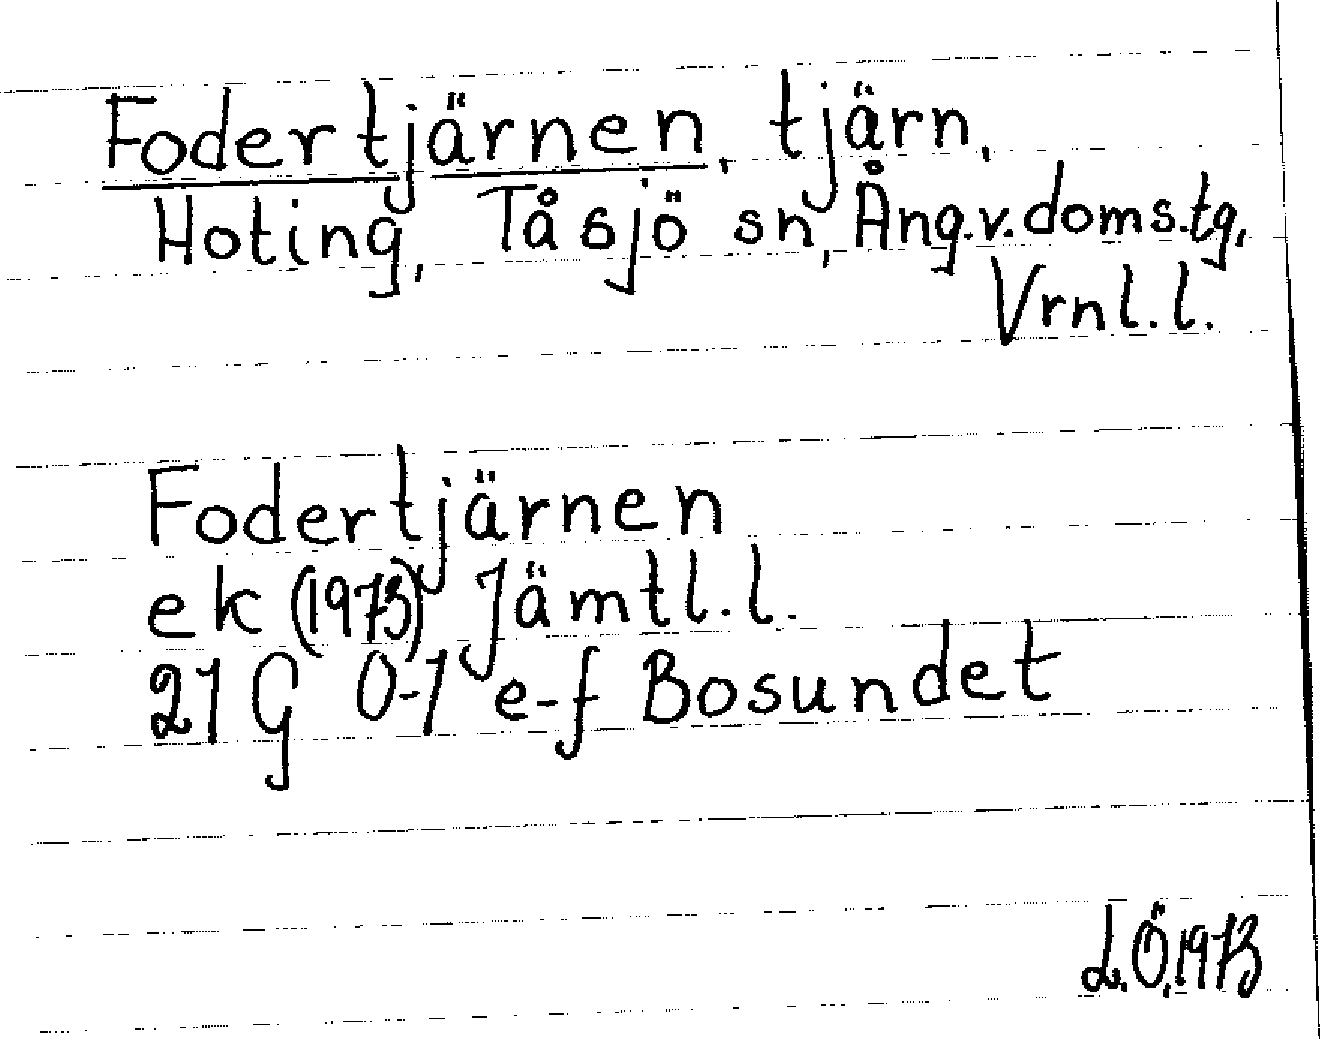 Fodertjärnen, tjärn,
Hoting, Tåsjö sn, Ång.v.doms.tg,
Vrnl.l.
Fodertjärnen
ek (1973) Jämtl.l.
21 G 0-1 e-f Bosundet
L.Ö.1973